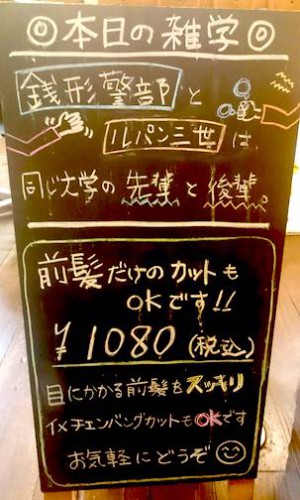 ◎本日の雑学◎
銭形警部と
ルパン三世は
同じ大学の先輩と後輩。
前髪だけのカットも
OKです!!
¥1080(税込)
目にかかる前髪をスッキリ
イメチェンバングカットもOKです
お気軽にどうぞ